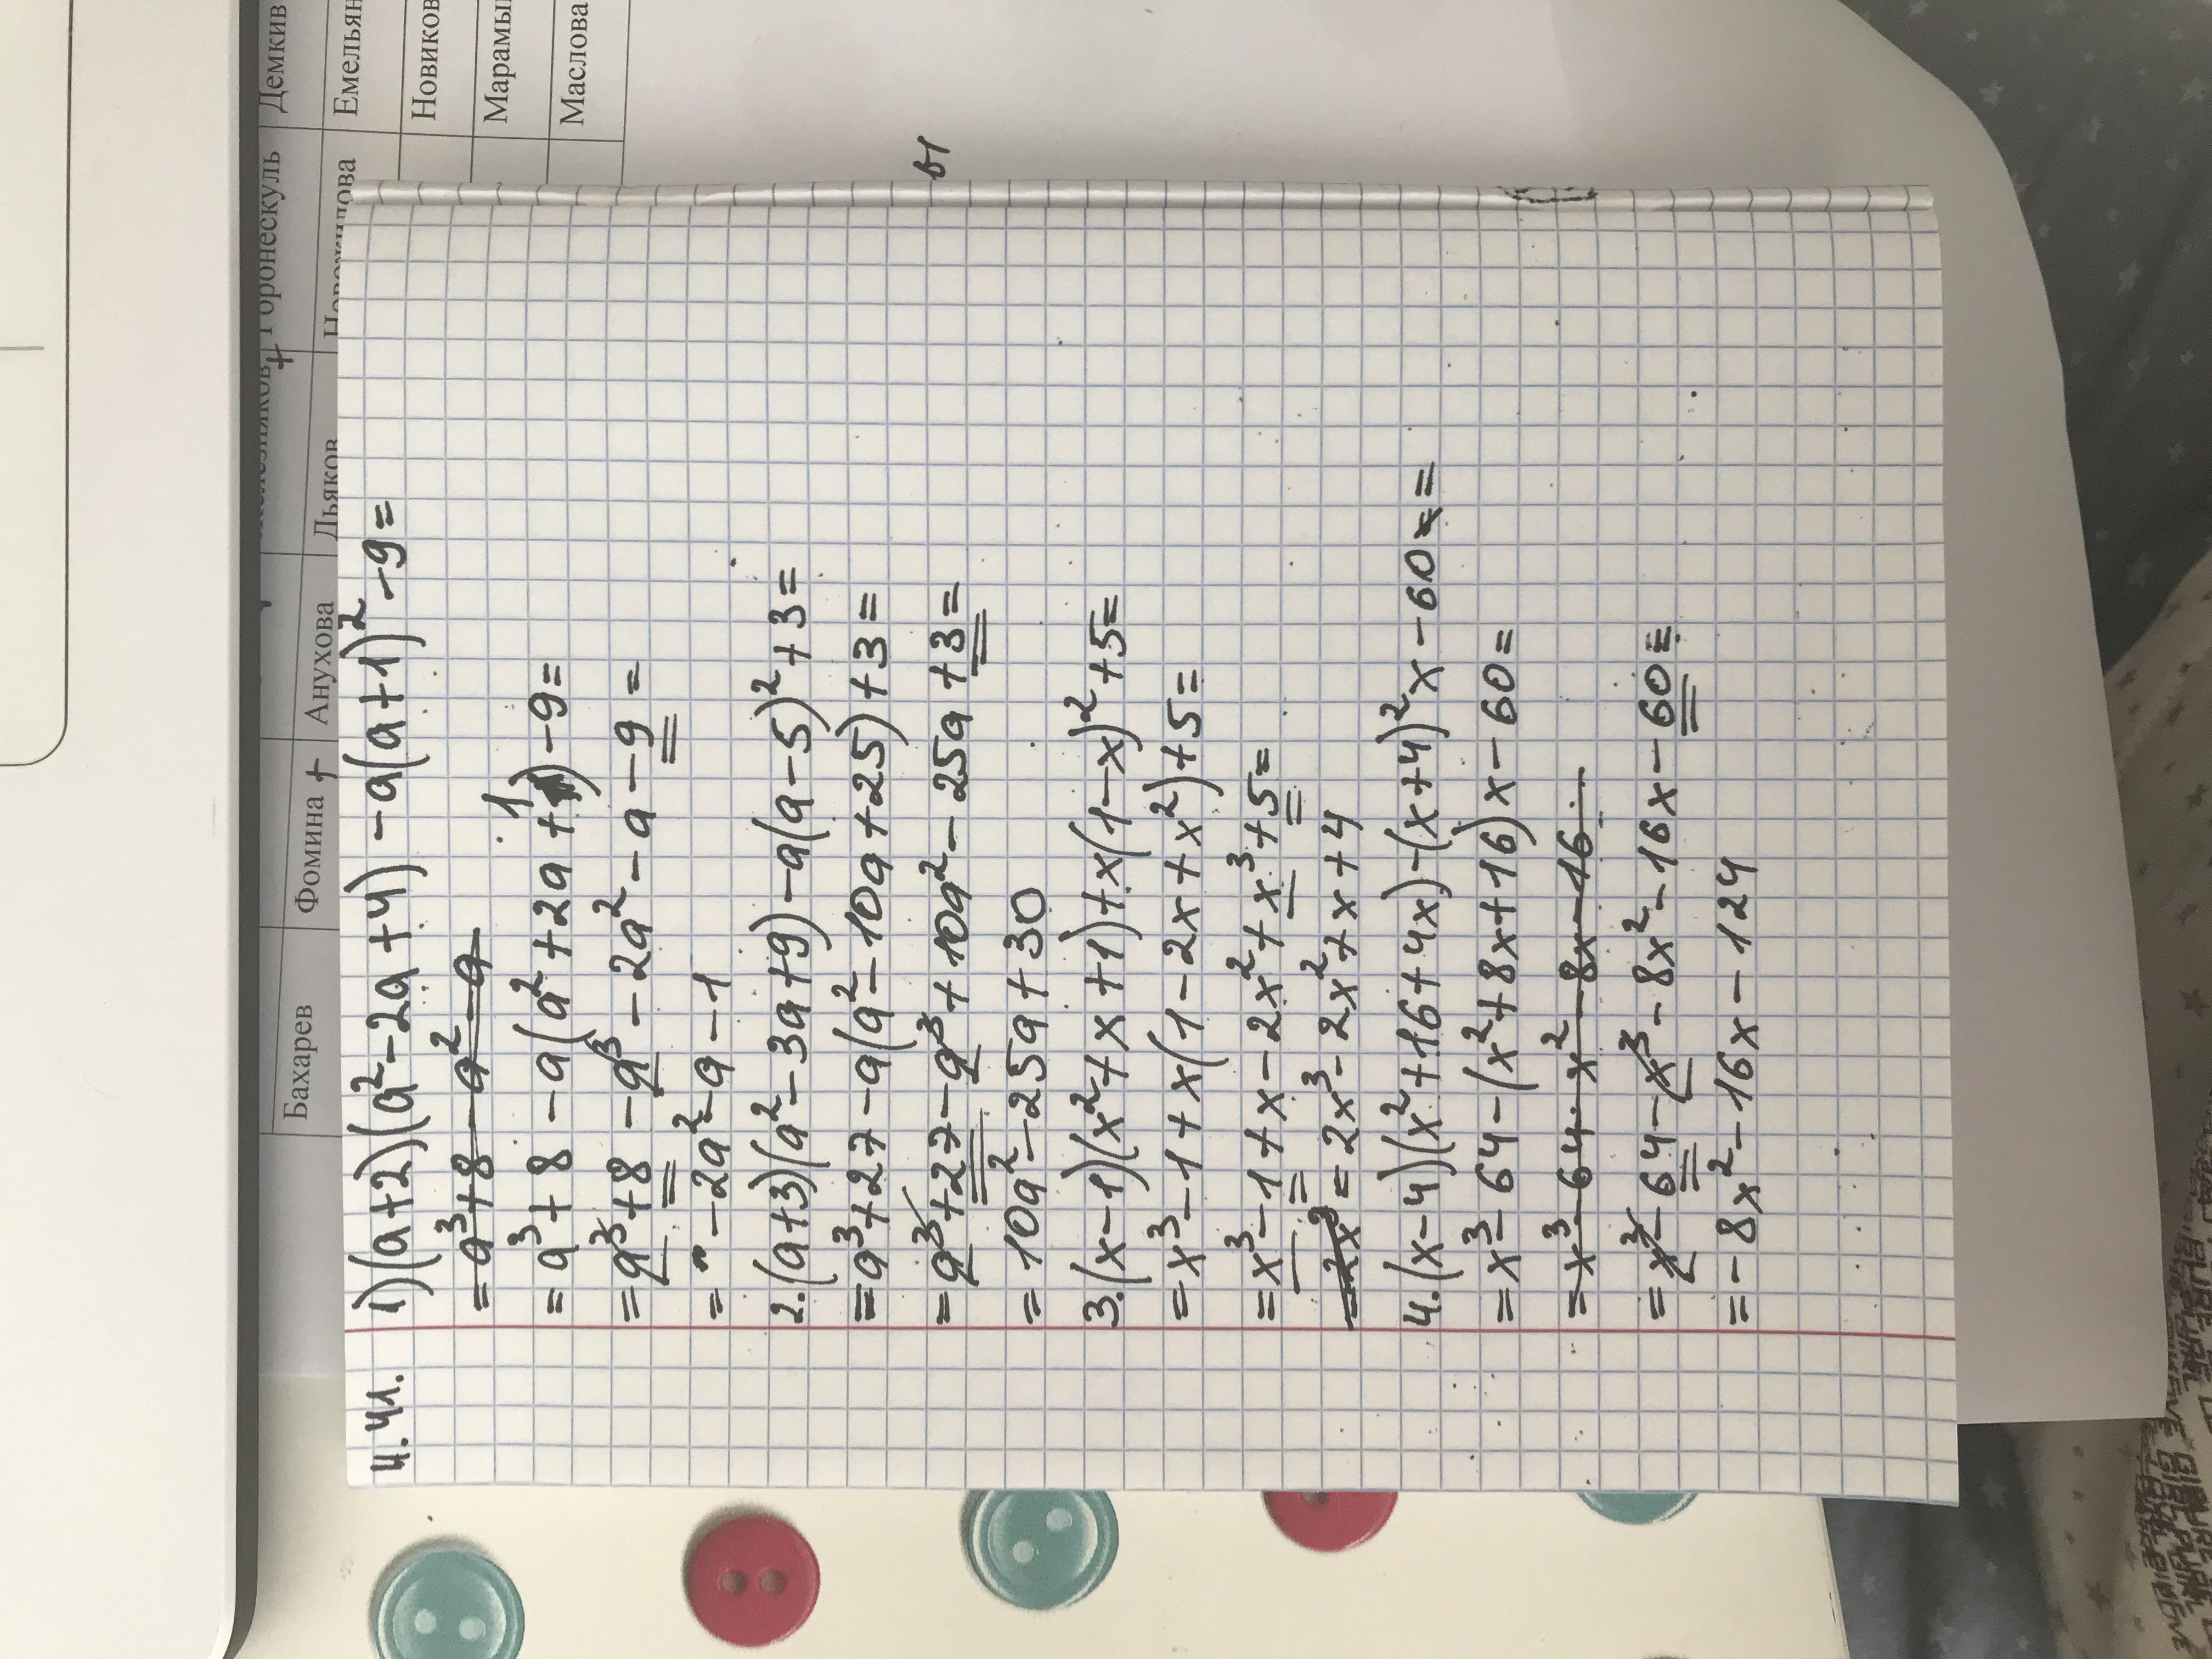 Бахарев Фомина + Анухова Дьяков
Горонескуль Демкив
Емельян
Новиков
Марамы
Маслова
ы
4.41. 1)(a+2)(a²-2a+4)-a(a+1)²-9=
=a³+8-a²-a
=a³+8-a(a²+2a+1)-9=
=a³+8-a³-2a²-a-9=
=-2a²-a-1
2.(a+3)(a²-3a+9)-a(a-5)²+3=
=a³+27-a(a²-10a+25)+3=
=a³+27-a³+10a²-25a+3=
=10a²-25a+30
3.(x-1)(x²+x+1)+x(1-x)²+5=
=x³-1+x(1-2x+x²)+5=
=x³-1+x-2x²+x³+5=
=2x³=2x³-2x²+x+4
4.(x-4)(x²+16+4x)-(x+4)²x-60=
=x³-64-(x²+8x+16)x-60=
=x³-64-x²-8x-16
=x³-64-x³-8x²-16x-60=
=-8x²-16x-124